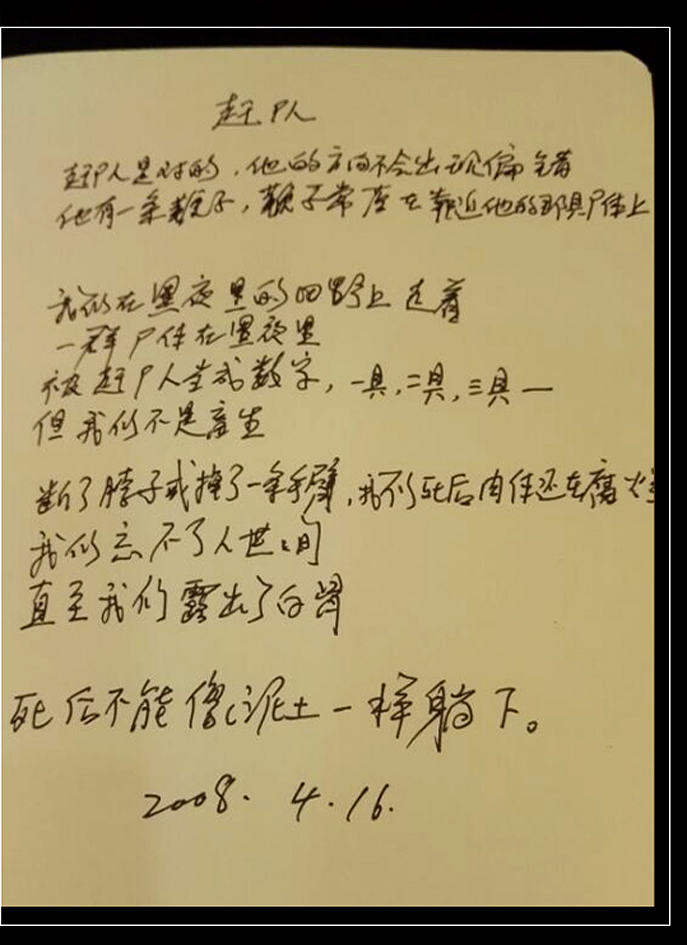 赶尸人
赶尸人是对的，他的方向不会出现偏错
他有一条鞭子，鞭子常落在靠近他的那具尸体上
我们在黑夜里的田野上走着
一群尸体在黑夜里
被赶尸人当成数字，一具，二具，三具一
但我们不是畜生
断了脖子或掉了一条手臂，我们死后肉体还在腐烂
我们忘不了人世间
直至我们露出了白骨
死后不能像泥土一样躺下。
2008. 4.16.